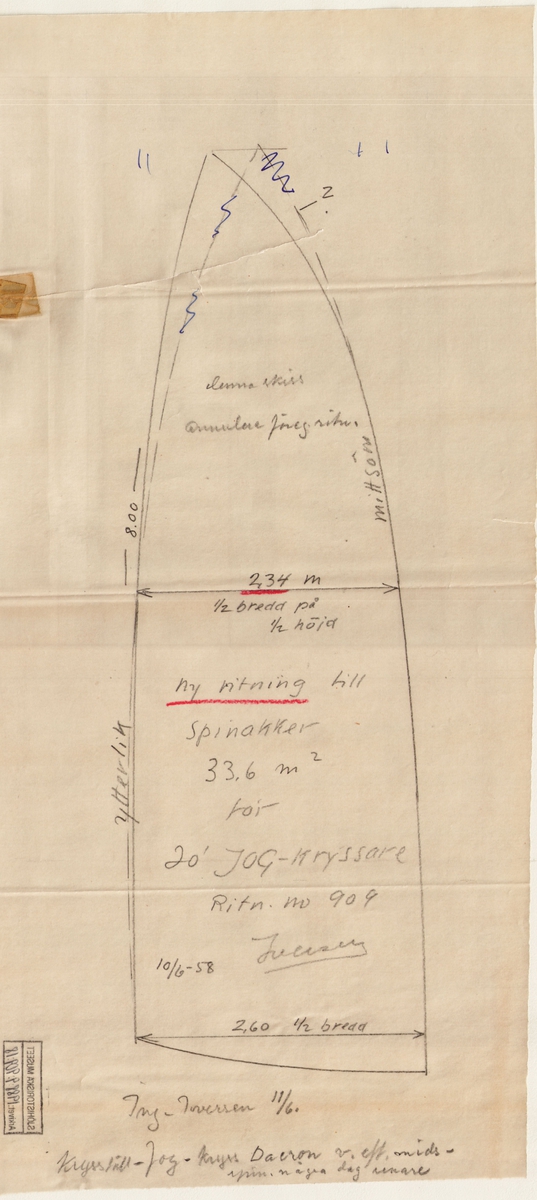 2.
denna skiss
annulera föreg. ritn.
mittsöm
8.00
2,34 m
1/2 bredd på
1/2 höjd
ny ritning till
Spinakker
33,6 m²
för
ytterlik
20' JOG-Kryssare
Ritn. no 909
Iversen
10/6-58
2,60 1/2 bredd
SJÖHISTORISKA MUSEET
Ing. Iversen 11/6.
Kryss Dacron v. eft. mids-
spin. några dag senare